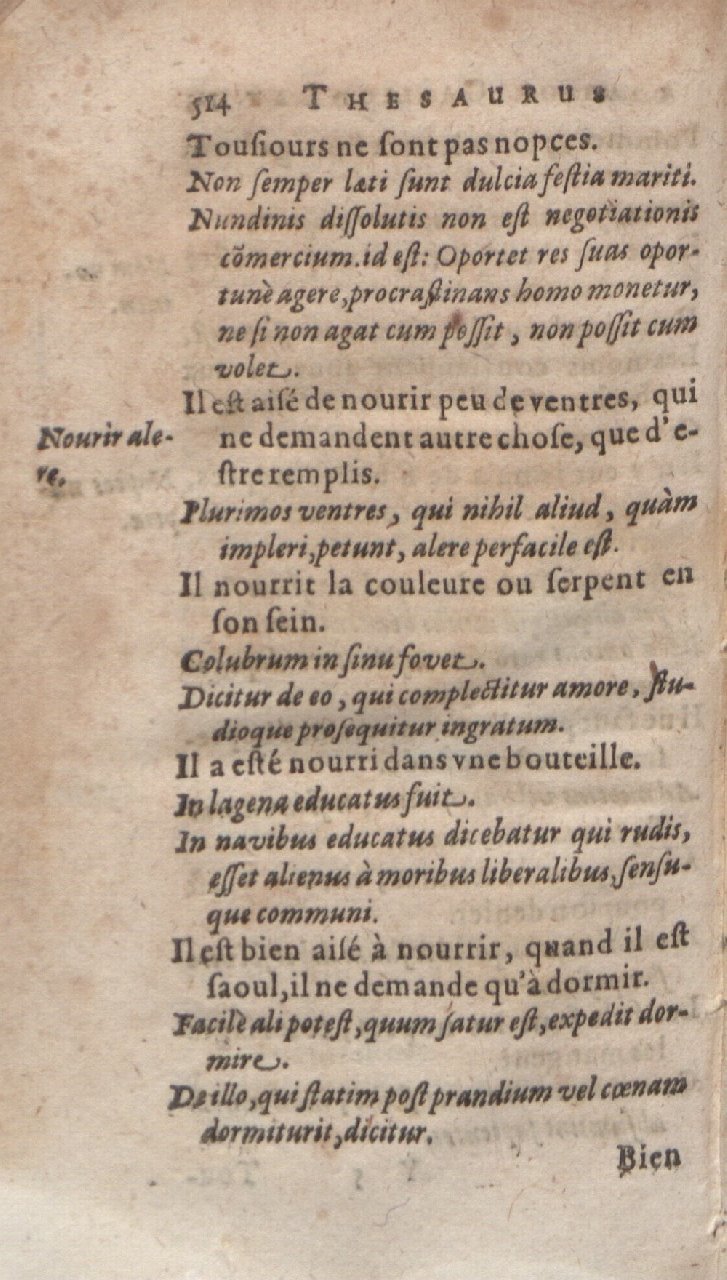 514 THESAURUS
Tousiours ne sont pas nopces.
Non semper læti sunt dulcia festia mariti.
Nundinis dissolutis non est negotiationis
cõmercium. id est: Oportet res suas opor-
tunè agere, procrastinans homo monetur,
ne si non agat cum possit, non possit cum
volet.
Il est aisé de nourir peu de ventres, qui
Nourir ale-
ne demandent autre chose, que d'e-
re.
stre remplis.
Plurimos ventres, qui nihil aliud, quàm
impleri, petunt, alere perfacile est.
Il nourrit la couleure ou serpent en
son sein.
Colubrum in sinu fovet.
Dicitur de eo, qui complectitur amore, stu-
dioque prosequitur ingratum.
Il a esté nourri dans vne bouteille.
In lagena educatus fuit.
In navibus educatus dicebatur qui rudis,
esset alienus à moribus liberalibus, sensu-
que communi.
Il est bien aisé à nourrir, quand il est
saoul, il ne demande qu'à dormir.
Facilè ali potest, quum satur est, expedit dor-
mire.
De illo, qui statim post prandium vel cœnam
dormiturit, dicitur.
Bien